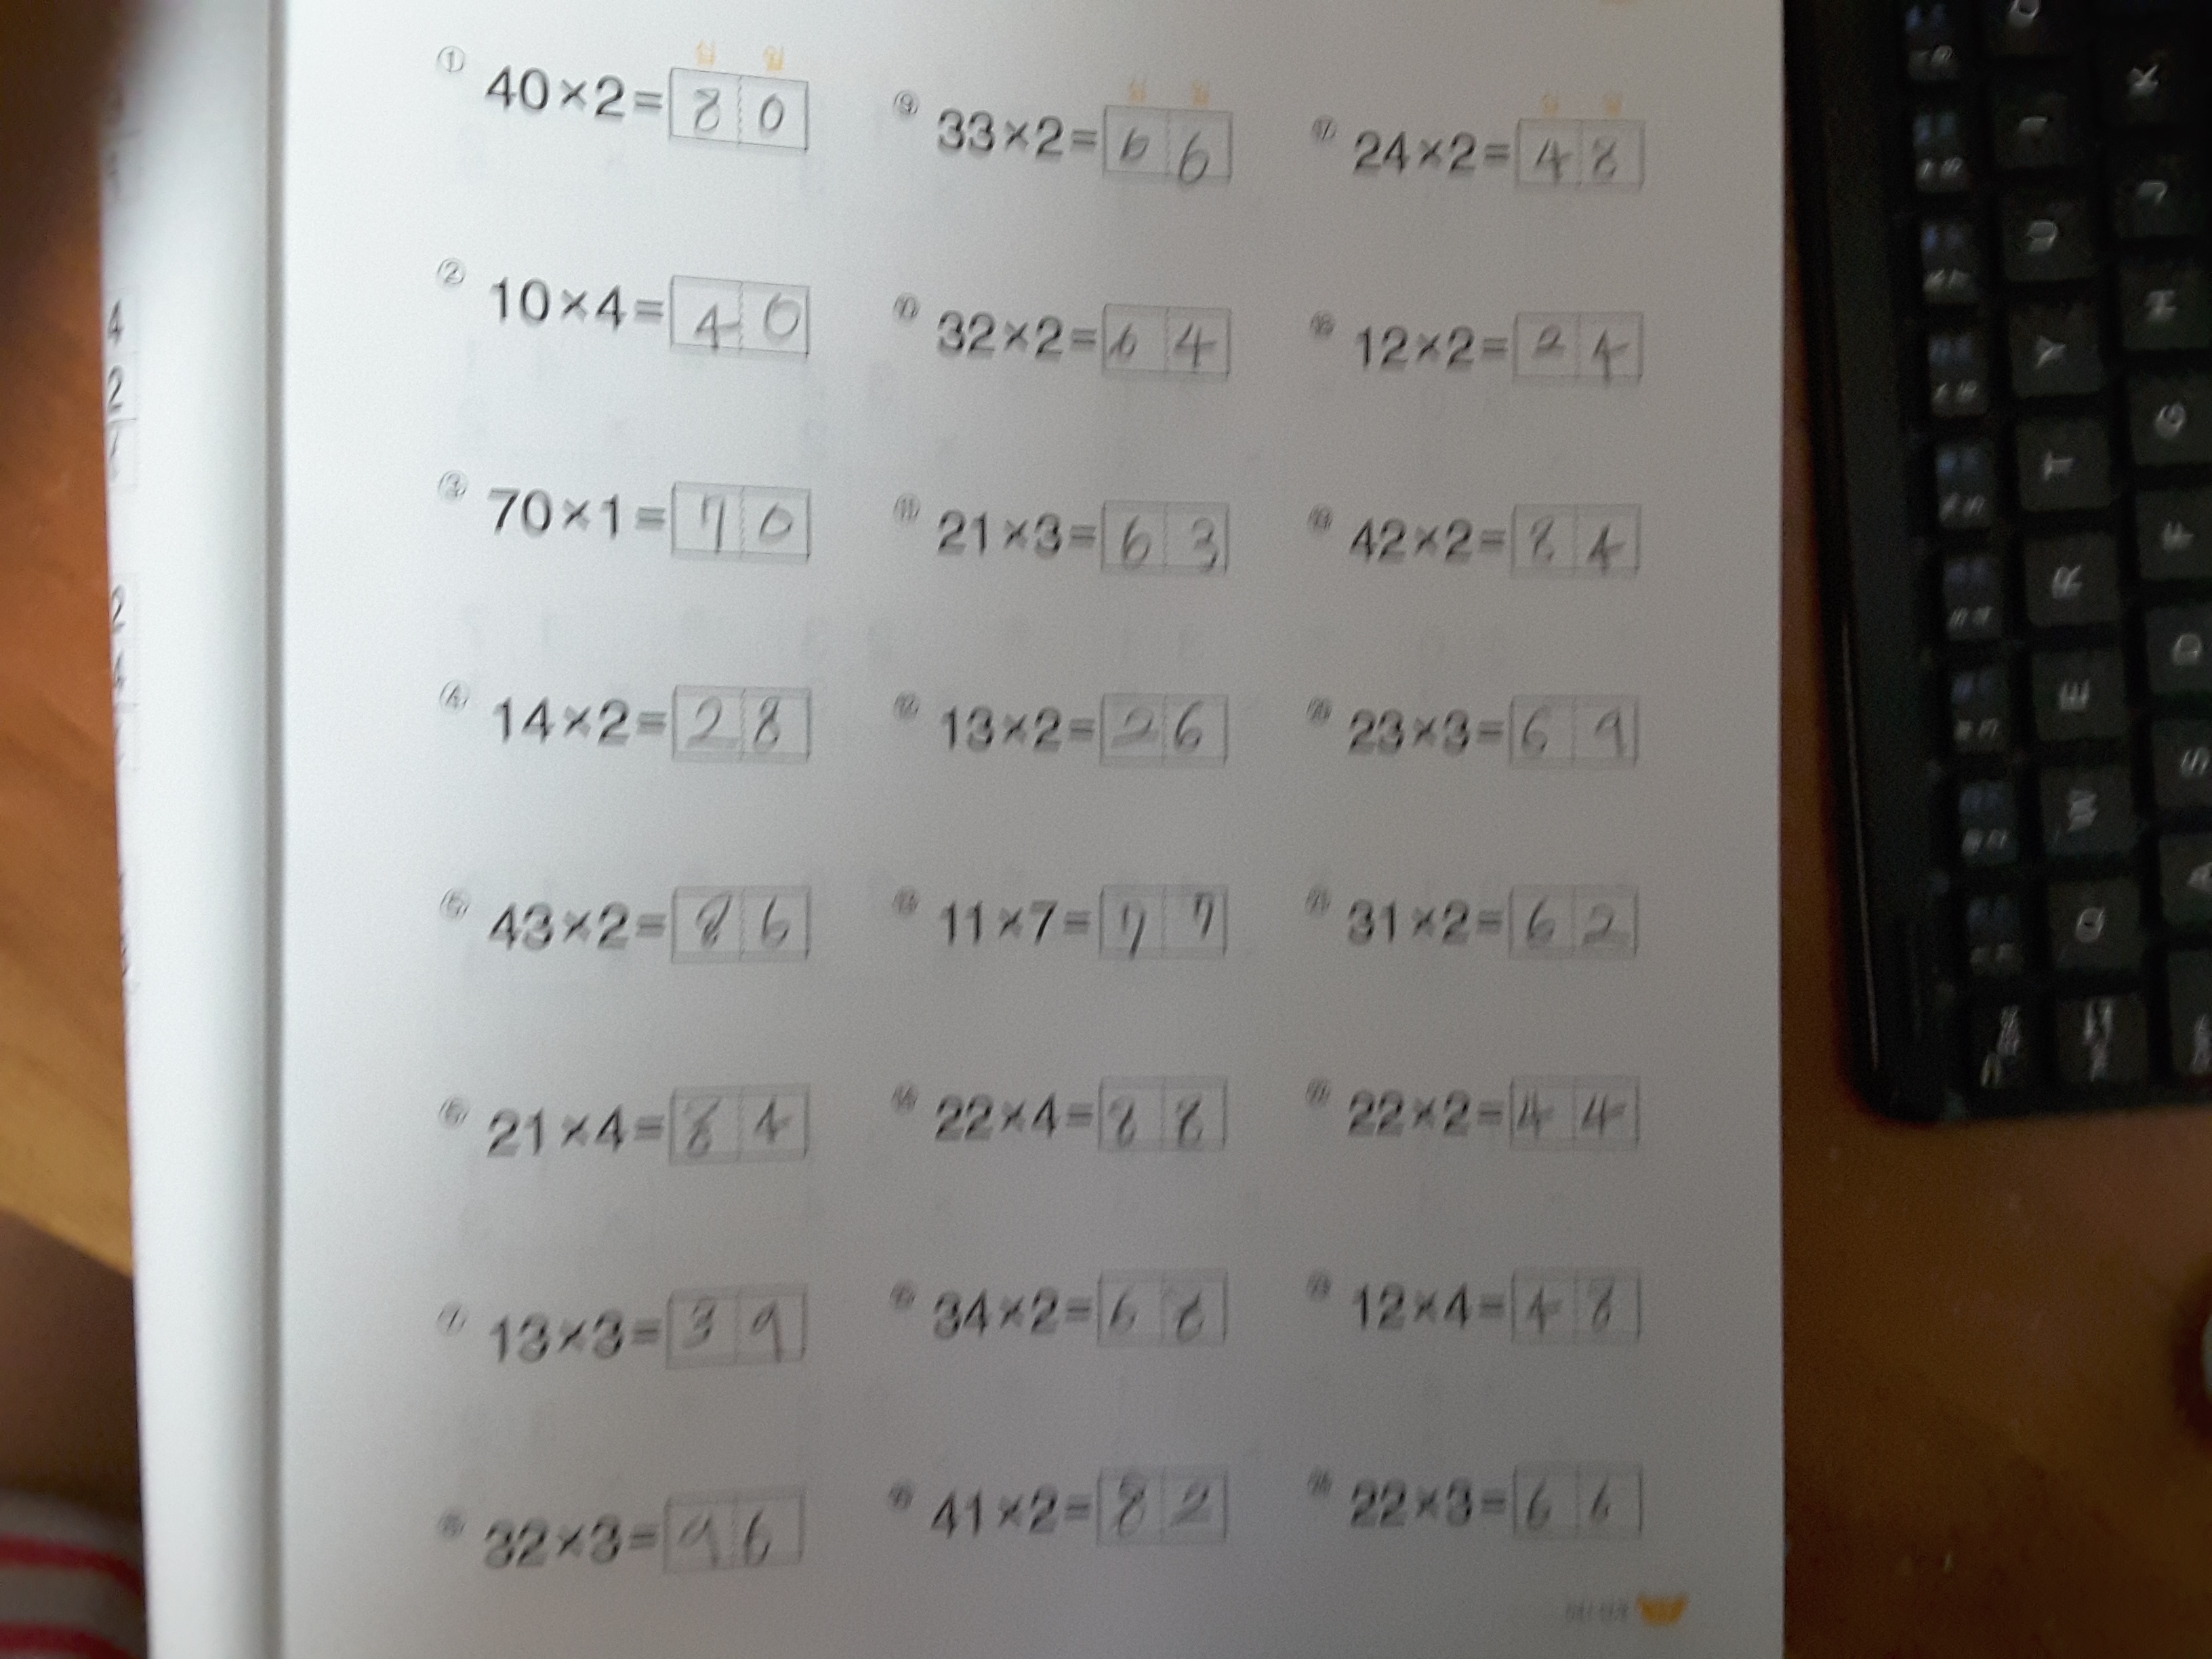 십 일
① 40×2=80
② 10×4=40
③ 70×1=70
④ 14×2=28
⑤ 43×2=86
⑥ 21×4=84
⑦ 13×3=39
⑧ 32×3=96
십 일
⑨ 33×2=66
⑩ 32×2=64
⑪ 21×3=63
⑫ 13×2=26
⑬ 11×7=77
⑭ 22×4=88
⑮ 34×2=68
⑯ 41×2=82
십 일
⑰ 24×2=48
⑱ 12×2=24
⑲ 42×2=84
⑳ 23×3=69
㉑ 31×2=62
㉒ 22×2=44
㉓ 12×4=48
㉔ 22×3=66
4
2
2
4
K
J
U
H
Y
G
T
F
R
D
E
S
W
A
Q